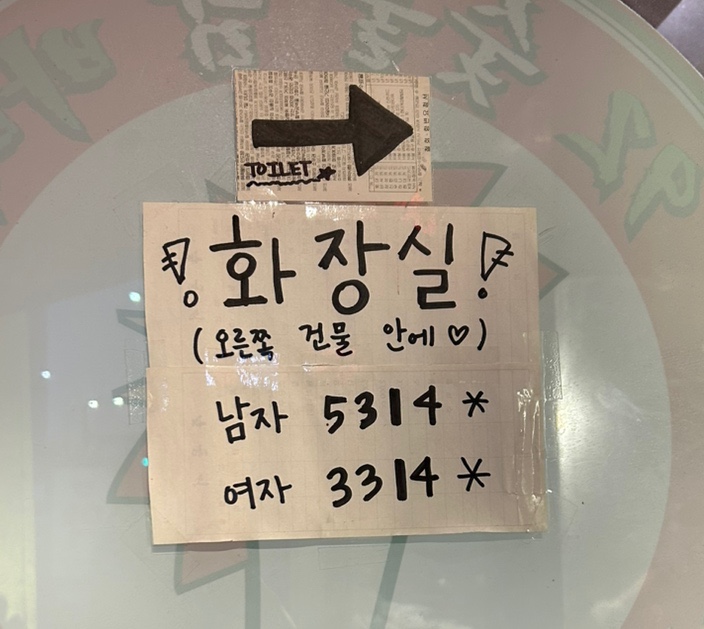 TOILET
화장실
(오른쪽 건물 안에♡)
남자 5314*
여자 3314*